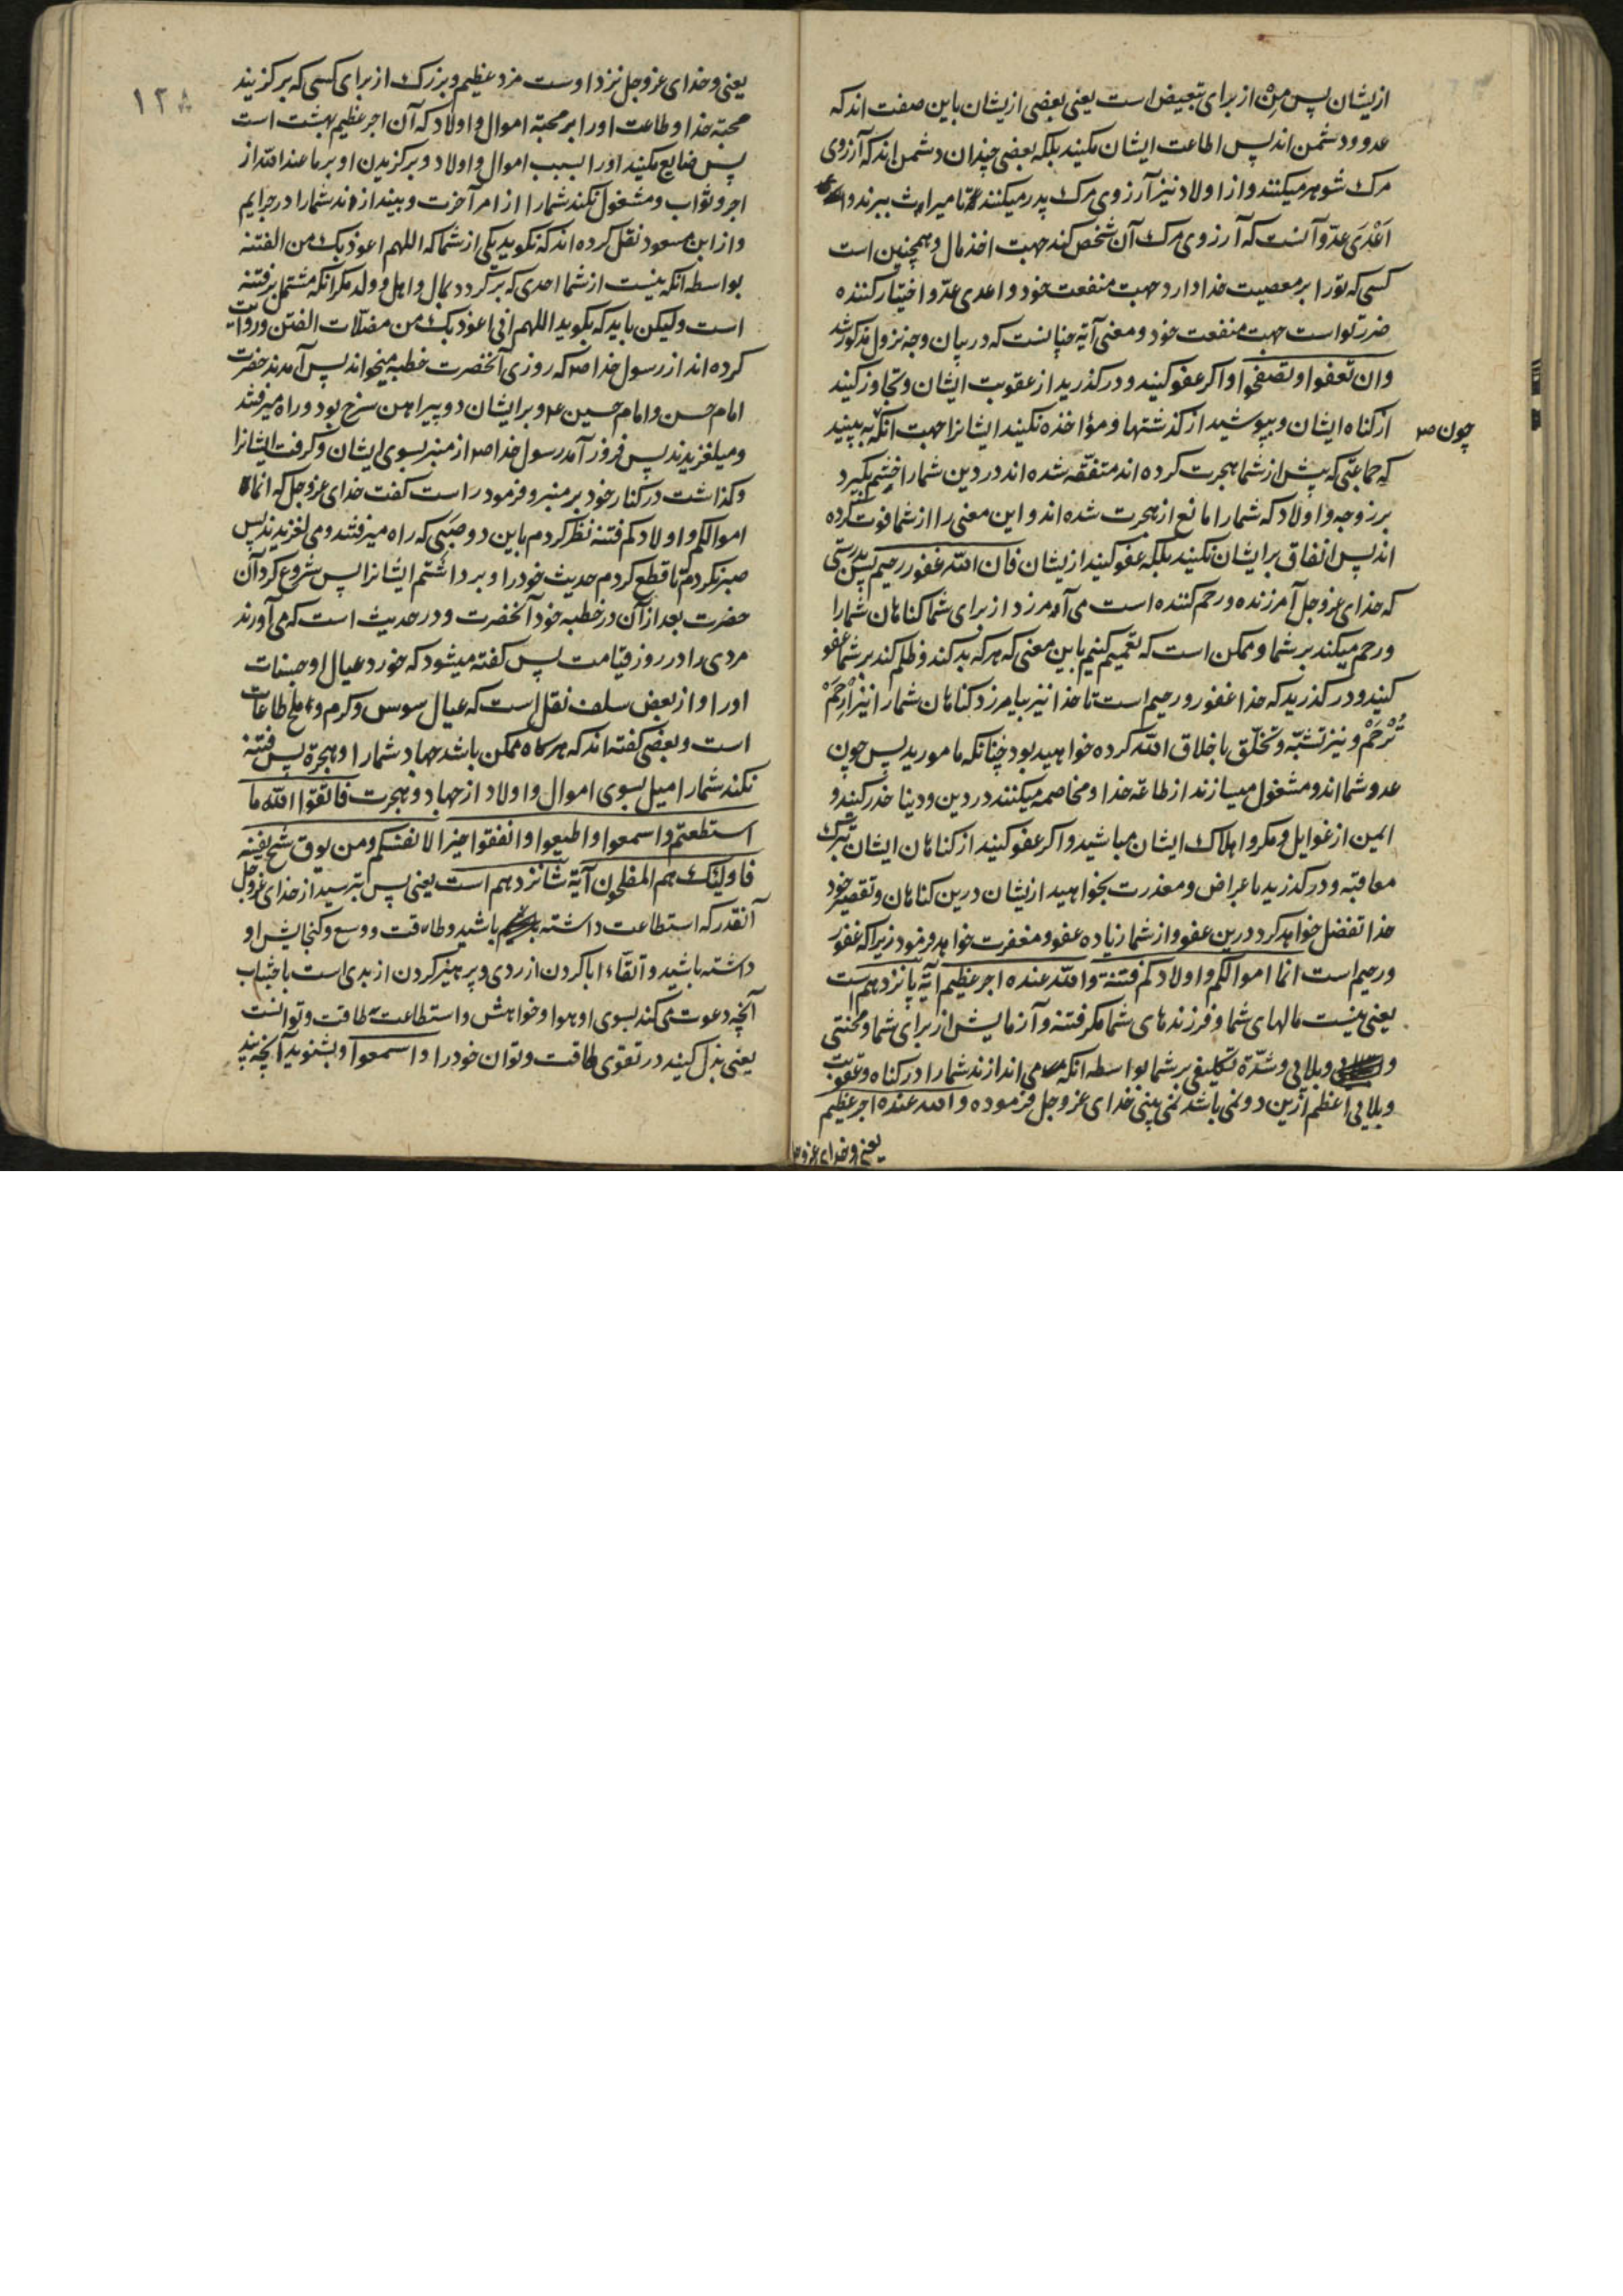 ازیشان پس مِن از برای تبعیض است یعنی بعضی ازیشان باین صفت اند که
عدو و دشمن اند پس اطاعت ایشان مکنید بلکه بعضی چندان دشمن اند که آرزوی
مرک شوهر میکنند و از اولاد نیز آرزوی مرک پدر میکنند تا میراث ببرند و
اَعْدَی عدّو آنست که آرزوی مرک آن شخص کند جهت اخذ مال و همچنین است
کسی که تو را بر معصیت خدا دارد جهت منفعت خود و اعدی عدّو اختیار کننده
ضرر تو است جهت منفعت خود و معنی آیة چنانست که در بیان وجه نزول مذکور شد
وان تعفوا و تصفحوا و اکر عفو کنید و در کذرید از عقوبت ایشان و تجاوز کنید
از کناه ایشان و بپوشید از کذشتها و مؤاخذه نکنید ایشانرا جهت آنکه به بینید
چون صح
که جماعتی که پیش از شما هجرت کرده اند متفقّه شده اند در دین شما را خشم بکیرد
بر زوجه و اولاد که شما را مانع از هجرت شده اند و این معنی را از شما فوت کرده
اند پس انفاق بر ایشان نکنید بلکه عفو کنید ازیشان فان الله غفور رحیم پس بدرستی
که خدای عزوجل آمرزنده و رحم کننده است می آمرزد از برای شما کناهان شما را
و رحم میکند بر شما و ممکن است که تعمیم کنیم باین معنی که هر که بد کند و ظلم کند بر شما عفو
کنید و در کذرید که خدا غفور و رحیم است تا خدا نیز بیامرزد کناهان شما را نیز اِرْحَمْ
تُرْحَمْ و نیز تشبّه و تخلّق باخلاق الله کرده خواهید بود چنانکه مامورید پس چون
عدو شما اند و مشغول میسازند از طاعة خدا و مخاصمه میکنند در دین و دنیا حذر کنید و
ایمن از غوایل و مکر و اهلاک ایشان مباشید و اکر عفو کنید از کناهان ایشان بترک
معاقبه و در کذرید باعراض و معذرت بخواهید ازیشان درین کناهان و تقصیر خود
خدا تفضل خواهد کرد درین عفو و از شما زیاده عفو و مغفرت خواهد فرمود زیرا که غفور
و رحیم است انما اموالکم و اولادکم فتنة والله عنده اجر عظیم آیة پانزدهم است
یعنی نیست مالهای شما و فرزندهای شما مکر فتنه و آزمایش از برای شما و محنتی
و وبلایی و شدّة تکلیفی بر شما بواسطه آنکه می اندازند شما را در کناه و عقوبت
و بلایی اعظم ازین دو نمی باشد نمی بینی خدای عزوجل فرموده والله عنده اجر عظیم
یعنی و خدای عزوجل
۱۳۸
یعنی و خدای عزوجل نزد اوست مزد عظیم و بزرک از برای کسی که بر کزیند
محبّة خدا و طاعت او را بر محبّة اموال و اولاد که آن اجر عظیم بهشت است
پس ضایع مکنید او را بسبب اموال و اولاد و بر کزیدن او بر ما عند الله از
اجر و ثواب و مشغول نکند شما را از امر آخرت و بیندازند شما را در جرایم
و از ابن مسعود نقل کرده اند که نکوید یکی از شما که اللهم اعوذ بک من الفتنه
بواسطه آنکه نیست از شما احدی که بر کردد بمال و اهل و ولد مکر آنکه مشتمل بر فتنه
است ولیکن باید که بکوید اللهم انی اعوذ بک من مضلّات الفتن و روایت
کرده اند از رسول خدا ص که روزی آنحضرت خطبه میخواند پس آمدند حضرت
امام حسن و امام حسین ع و بر ایشان دو پیراهن سرخ بود و راه میرفتند
و میلغزیدند پس فرود آمد رسول خدا ص از منبر بسوی ایشان و کرفت ایشانرا
و کذاشت در کنار خود بر منبر و فرمود راست کفت خدای عزوجل که انما
اموالکم و اولادکم فتنه نظر کردم باین دو صَبّی که راه میرفتند و می لغزیدند پس
صبر نکردم تا قطع کردم حدیث خود را و برداشتم ایشانرا پس شروع کرد آن
حضرت بعد از آن در خطبه خود آنحضرت و در حدیث است که می آورند
مردی را در روز قیامت پس کفته میشود که خورد عیال او حسنات
او را و از بعض سلف نقل است که عیال سوس و کرم و طاعات
است و بعضی کفته اند که هر کاه ممکن باشد جهاد شما را و هجرة پس فتنه
نکند شما را میل بسوی اموال و اولاد از جهاد و هجرت فاتّقوا الله ما
استطعتم و اسمعوا و اطیعوا و انفقوا خیرا لانفسکم و من یوق شح نفسه
فاولئک هم المفلحون آیة شانزدهم است یعنی پس بترسید از خدای عزوجل
آنقدر که استطاعت داشته باشید و طاقت و وسع و کنجایش او
داشته باشید و اتّقاء ابا کردن از ردی و پرهیز کردن از بدی است باجتناب
آنچه دعوت می کند بسوی او هوا و خواهش و استطاعت طاقت و توانست
یعنی بذل کنید در تقوی طاقت و توان خود را و اسمعوا و بشنوید آنچه پند